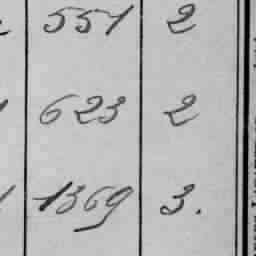 551 2
623 2
1369 3.